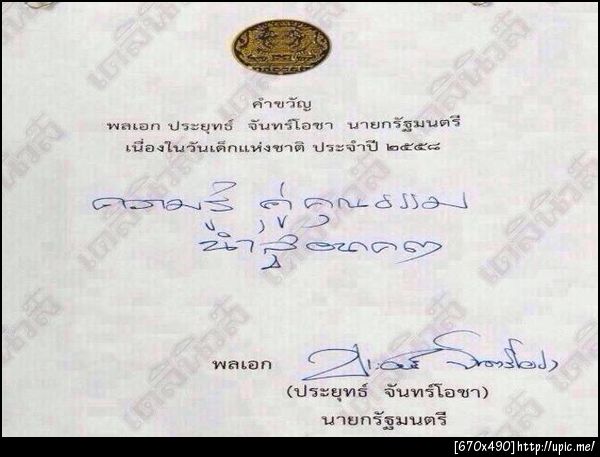 คำขวัญ
พลเอก ประยุทธ์ จันทร์โอชา นายกรัฐมนตรี
เนื่องในวันเด็กแห่งชาติ ประจำปี ๒๕๕๘
ความรู้ คู่คุณธรรม
นำสู่อนาคต
พลเอก
(ประยุทธ์ จันทร์โอชา)
นายกรัฐมนตรี
เดลินิวส์
[670x490]http://upic.me/